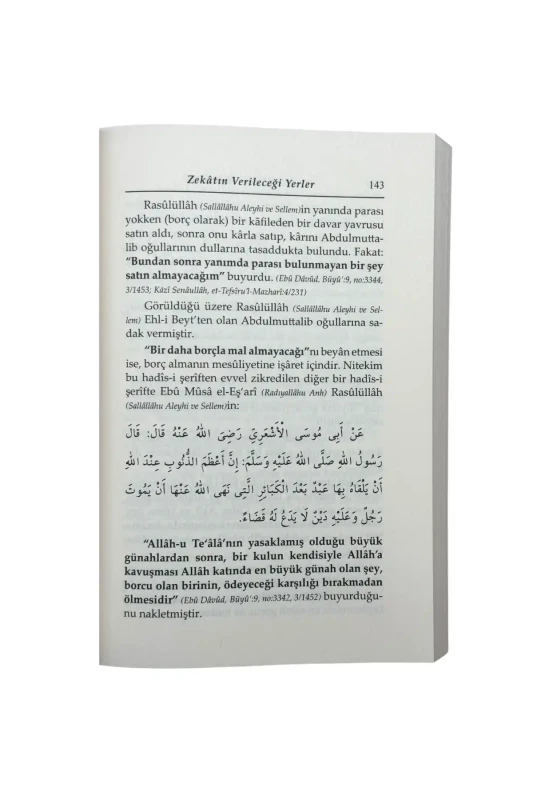 Zekâtın Verileceği Yerler 143
Rasûlüllâh (Sallâllâhu Aleyhi ve Sellem)in yanında parası
yokken (borç olarak) bir kâfileden bir davar yavrusu
satın aldı, sonra onu kârla satıp, kârını Abdulmutta-
lib oğullarının dullarına tasaddukta bulundu. Fakat:
"Bundan sonra yanımda parası bulunmayan bir şey
satın almayacağım" buyurdu. (Ebû Dâvûd, Büyû':9, no:3344,
3/1453; Kâzî Senâullâh, et-Tefsîru'l-Mazharî:4/231)
Görüldüğü üzere Rasûlüllâh (Sallâllâhu Aleyhi ve Sel-
lem) Ehl-i Beyt'ten olan Abdulmuttalib oğullarına sa-
dak vermiştir.
"Bir daha borçla mal almayacağı"nı beyân etmesi
ise, borç almanın mesûliyetine işâret içindir. Nitekim
bu hadîs-i şerîften evvel zikredilen diğer bir hadîs-i
şerîfte Ebû Mûsâ el-Eş'arî (Radıyallâhu Anh) Rasûlüllâh
(Sallâllâhu Aleyhi ve Sellem)in:
عَنْ أَبِي مُوسَى الْأَشْعَرِيِّ رَضِيَ اللهُ عَنْهُ قَالَ: قَالَ
رَسُولُ اللهِ صَلَّى اللهُ عَلَيْهِ وَسَلَّمَ: إِنَّ أَعْظَمَ الذُّنُوبِ عِنْدَ اللهِ
أَنْ يَلْقَاهُ بِهَا عَبْدٌ بَعْدَ الْكَبَائِرِ الَّتِي نَهَى اللهُ عَنْهَا أَنْ يَمُوتَ
رَجُلٌ وَعَلَيْهِ دَيْنٌ لَا يَدَعُ لَهُ قَضَاءً.
"Allâh-u Te'âlâ'nın yasaklamış olduğu büyük
günahlardan sonra, bir kulun kendisiyle Allâh'a
kavuşması Allâh katında en büyük günah olan şey,
borcu olan birinin, ödeyeceği karşılığı bırakmadan
ölmesidir" (Ebû Dâvûd, Büyû':9, no:3342, 3/1452) buyurduğu-
nu nakletmiştir.